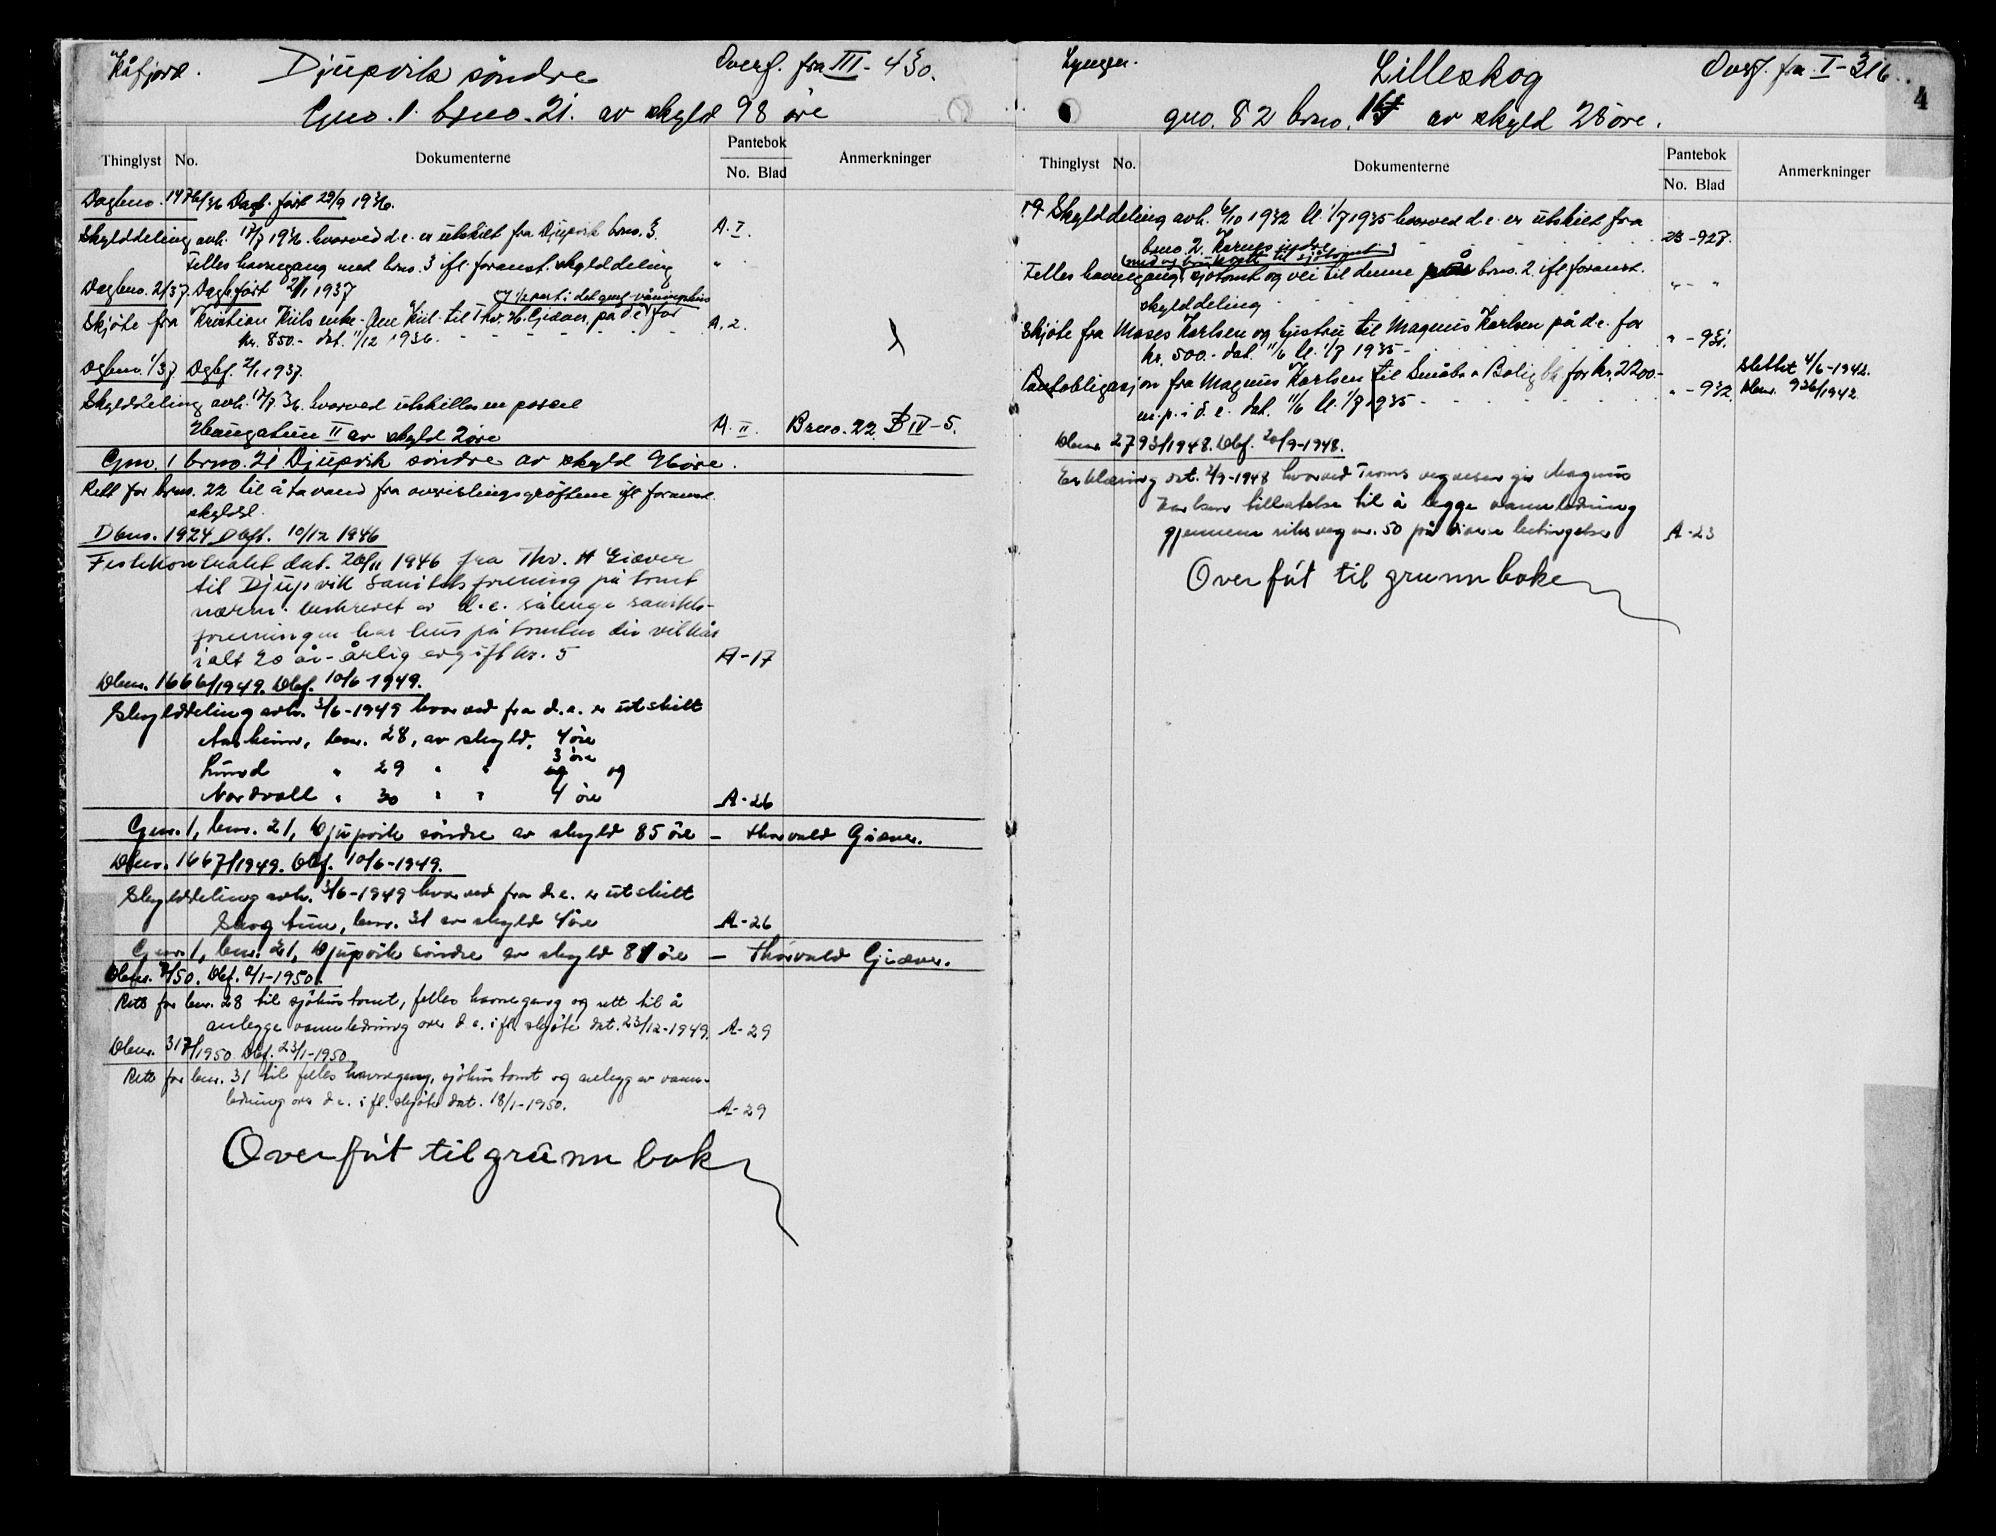 Kåfjord. Djupvik söndre Overf. fra III - 430.
Gno. 1. brno. 21. av skyld 98 öre
Thinglyst No. Dokumenterne Pantebok Anmerkninger
No. Blad
Dagbno. 1476/36 Dagb. fört 29/9 1936.
Skylddeling avh. 17/7 1936. hvorved d.e. er utskilt fra Djupvik brno. 3. A. I.
Felles havnegang med brno. 3 ifl. foranst. skylddeling "
Dagbno. 2/37. Dagbfört 2/1 1937
og 1/2 part i det gml. våningshus
Skjöte fra Kristian Kiils enke - Ane Kiil - til Thv. H. Giæver, på d.e. for A. 2.
kr. 850.- dat. 1/12 1936.
Dgbno. 1/37 Dgbf. 2/1 1937.
Skylddeling avh. 17/7. 36. hvorved utskilles en parsel
Haugatun II av skyld 2 öre A. II. Brno. 22. B IV - 5.
Gno. 1 brno. 21 Djupvik söndre av skyld 96 öre.
Rett for brno. 22 til å ta vand fra overislingsgröftene ifl foranst.
skyldd.
Dbno. 1924 Dbf. 10/12 1946
Festekontrakt dat. 20/11 1946 fra Thv. H Giæver
til Djupvik Sanitetsforening på tomt
nærm. beskrevet av d.e. sålenge sanitets-
foreningen har hus på tomten div vilkår
ialt 20 år - årlig avgift kr. 5 A-17
Dbnr. 1666/1949. Dbf. 10/6-1949.
Skylddeling avh. 3/6-1949 hvorved fra d.e. er utskilt
Aasheim, bnr. 28, av skyld, 4 öre
3 öre
Lund " 29 " " og og
Nordvoll " 30 " " 4 öre A-26
Gnr. 1, bnr. 21, Djupvik söndre av skyld 85 öre - Thorvald Giæver.
Dbnr. 1667/1949. Dbf. 10/6-1949.
Skylddeling avh. 3/6-1949 hvorved fra d.e. er utskilt
Skogtun, bnr. 31 av skyld 4 öre A-26
Gnr. 1, bnr. 21, Djupvik söndre av skyld 81 öre - Thorvald Giæver.
Dbnr. 2/50. Dbf. 2/1-1950.
Rett for bnr. 28 til sjöhustomt, felles havnegang og rett til å
anlegge vannledning over d.e. ifl. skjöte dat. 23/12-1949. A-29
Dbnr. 317/1950 Dbf. 23/1-1950
Rett for bnr. 31 til felles havnegang, sjöhustomt og anlegg av vann-
ledning over d.e. ifl. skjöte dat. 18/1-1950. A-29
Overfört til grunnboken
Lyngen. Lilleskog Overf. fra I - 316. 4
gno. 82 brno. 14 av skyld 28 öre.
Thinglyst No. Dokumenterne Pantebok Anmerkninger
No. Blad
Skylddeling avh. 6/10 1932 tl. 1/7 1935 hvorved d.e. er utskilt fra
brno. 2 Karnes indre 23 - 927.
Felles havnegang, sjötomt og vei til denne på brno. 2 ifl foranst.
skylddeling " - "
Skjöte fra Moses Karlsen og hustru til Magnus Karlsen på d.e. for
kr. 500.- dat. 11/6 tl. 1/7 1935 - " - 931.
Pantobligasjon fra Magnus Karlsen til Småbr. & Boligbk for kr. 2200.- Slettet 4/6-1942.
m.p. i d.e. dat. 11/6 tl. 1/7 1935 - " - 932. Dbnr. 926/1942.
Dbnr. 2793/1948. Dbf. 20/9-1948.
Erklæring dat. 2/9-1948 hvorved Troms vegvesen gir Magnus
Karlsen tillatelse til å legge vannledning
gjennem riksveg nr. 50 på visse betingelser A-23
Overfört til grunnboken